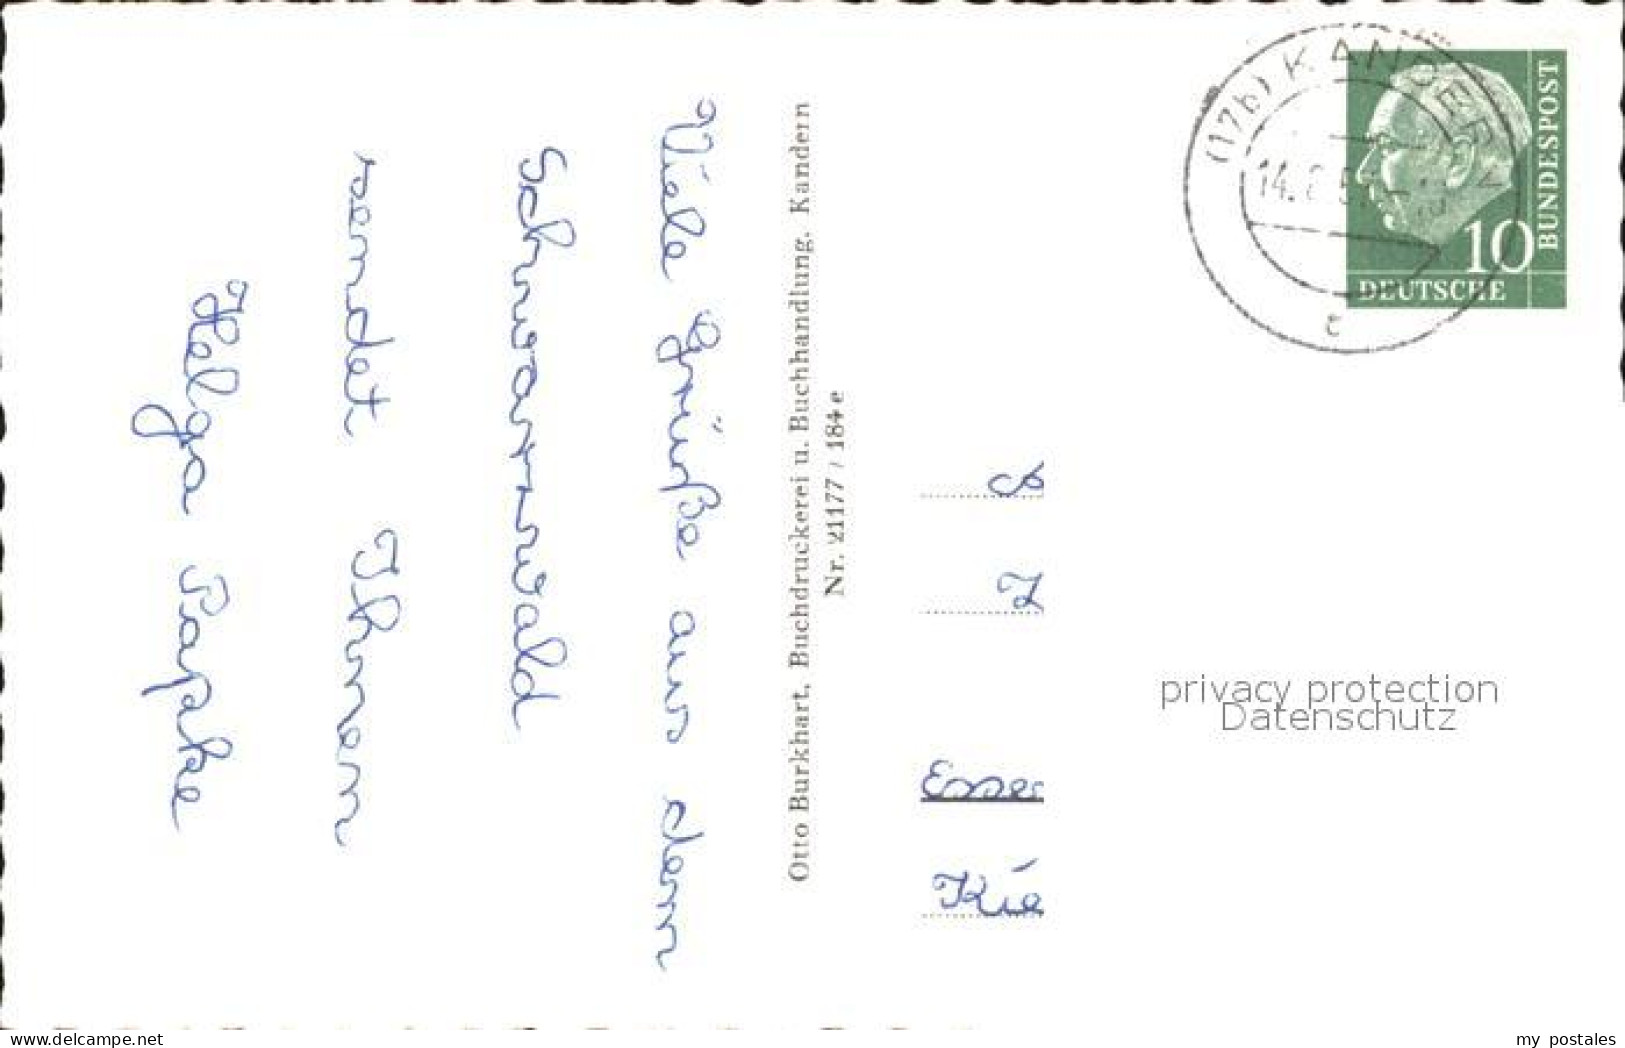 Viele Grüße aus dem
Schwarzwald
sendet Ihnen
Helga Papke
Otto Burkhart, Buchdruckerei u. Buchhandlung, Kandern
Nr. 21177 / 184 e
(17b) KANDERN
DEUTSCHE
BUNDESPOST
10
Kie
privacy protection
Datenschutz
www.delcampe.net
my_postales